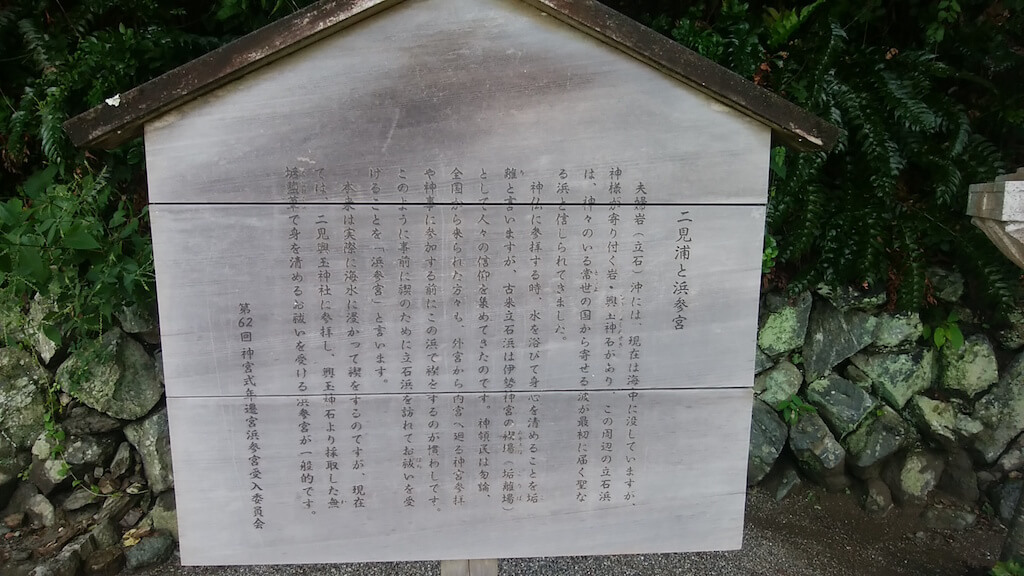 二見浦と浜参宮
夫婦岩（立石）沖には、現在は海中に没していますが、
神様が寄り付く岩・興玉神石があり、この周辺の立石浜
は、神々のいる常世の国から寄せる波が最初に届く聖な
る浜と信じられてきました。
神仏に参拝する時、水を浴びて身心を清めることを垢
離と言いますが、古来立石浜は伊勢神宮の禊場（垢離場）
として人々の信仰を集めてきたのです。神領民は勿論、
全国から来られた方々も、外宮から内宮へ廻る神宮参拝
や神事に参加する前にこの浜で禊をするのが慣わしです。
このように事前に禊のために立石浜を訪れてお祓いを受
けることを「浜参宮」と言います。
本来は実際に海水に浸かって禊をするのですが、現在
では、二見興玉神社に参拝し、興玉神石より採取した無
垢塩草で身を清めるお祓いを受ける浜参宮が一般的です。
第62回神宮式年遷宮浜参宮受入委員会